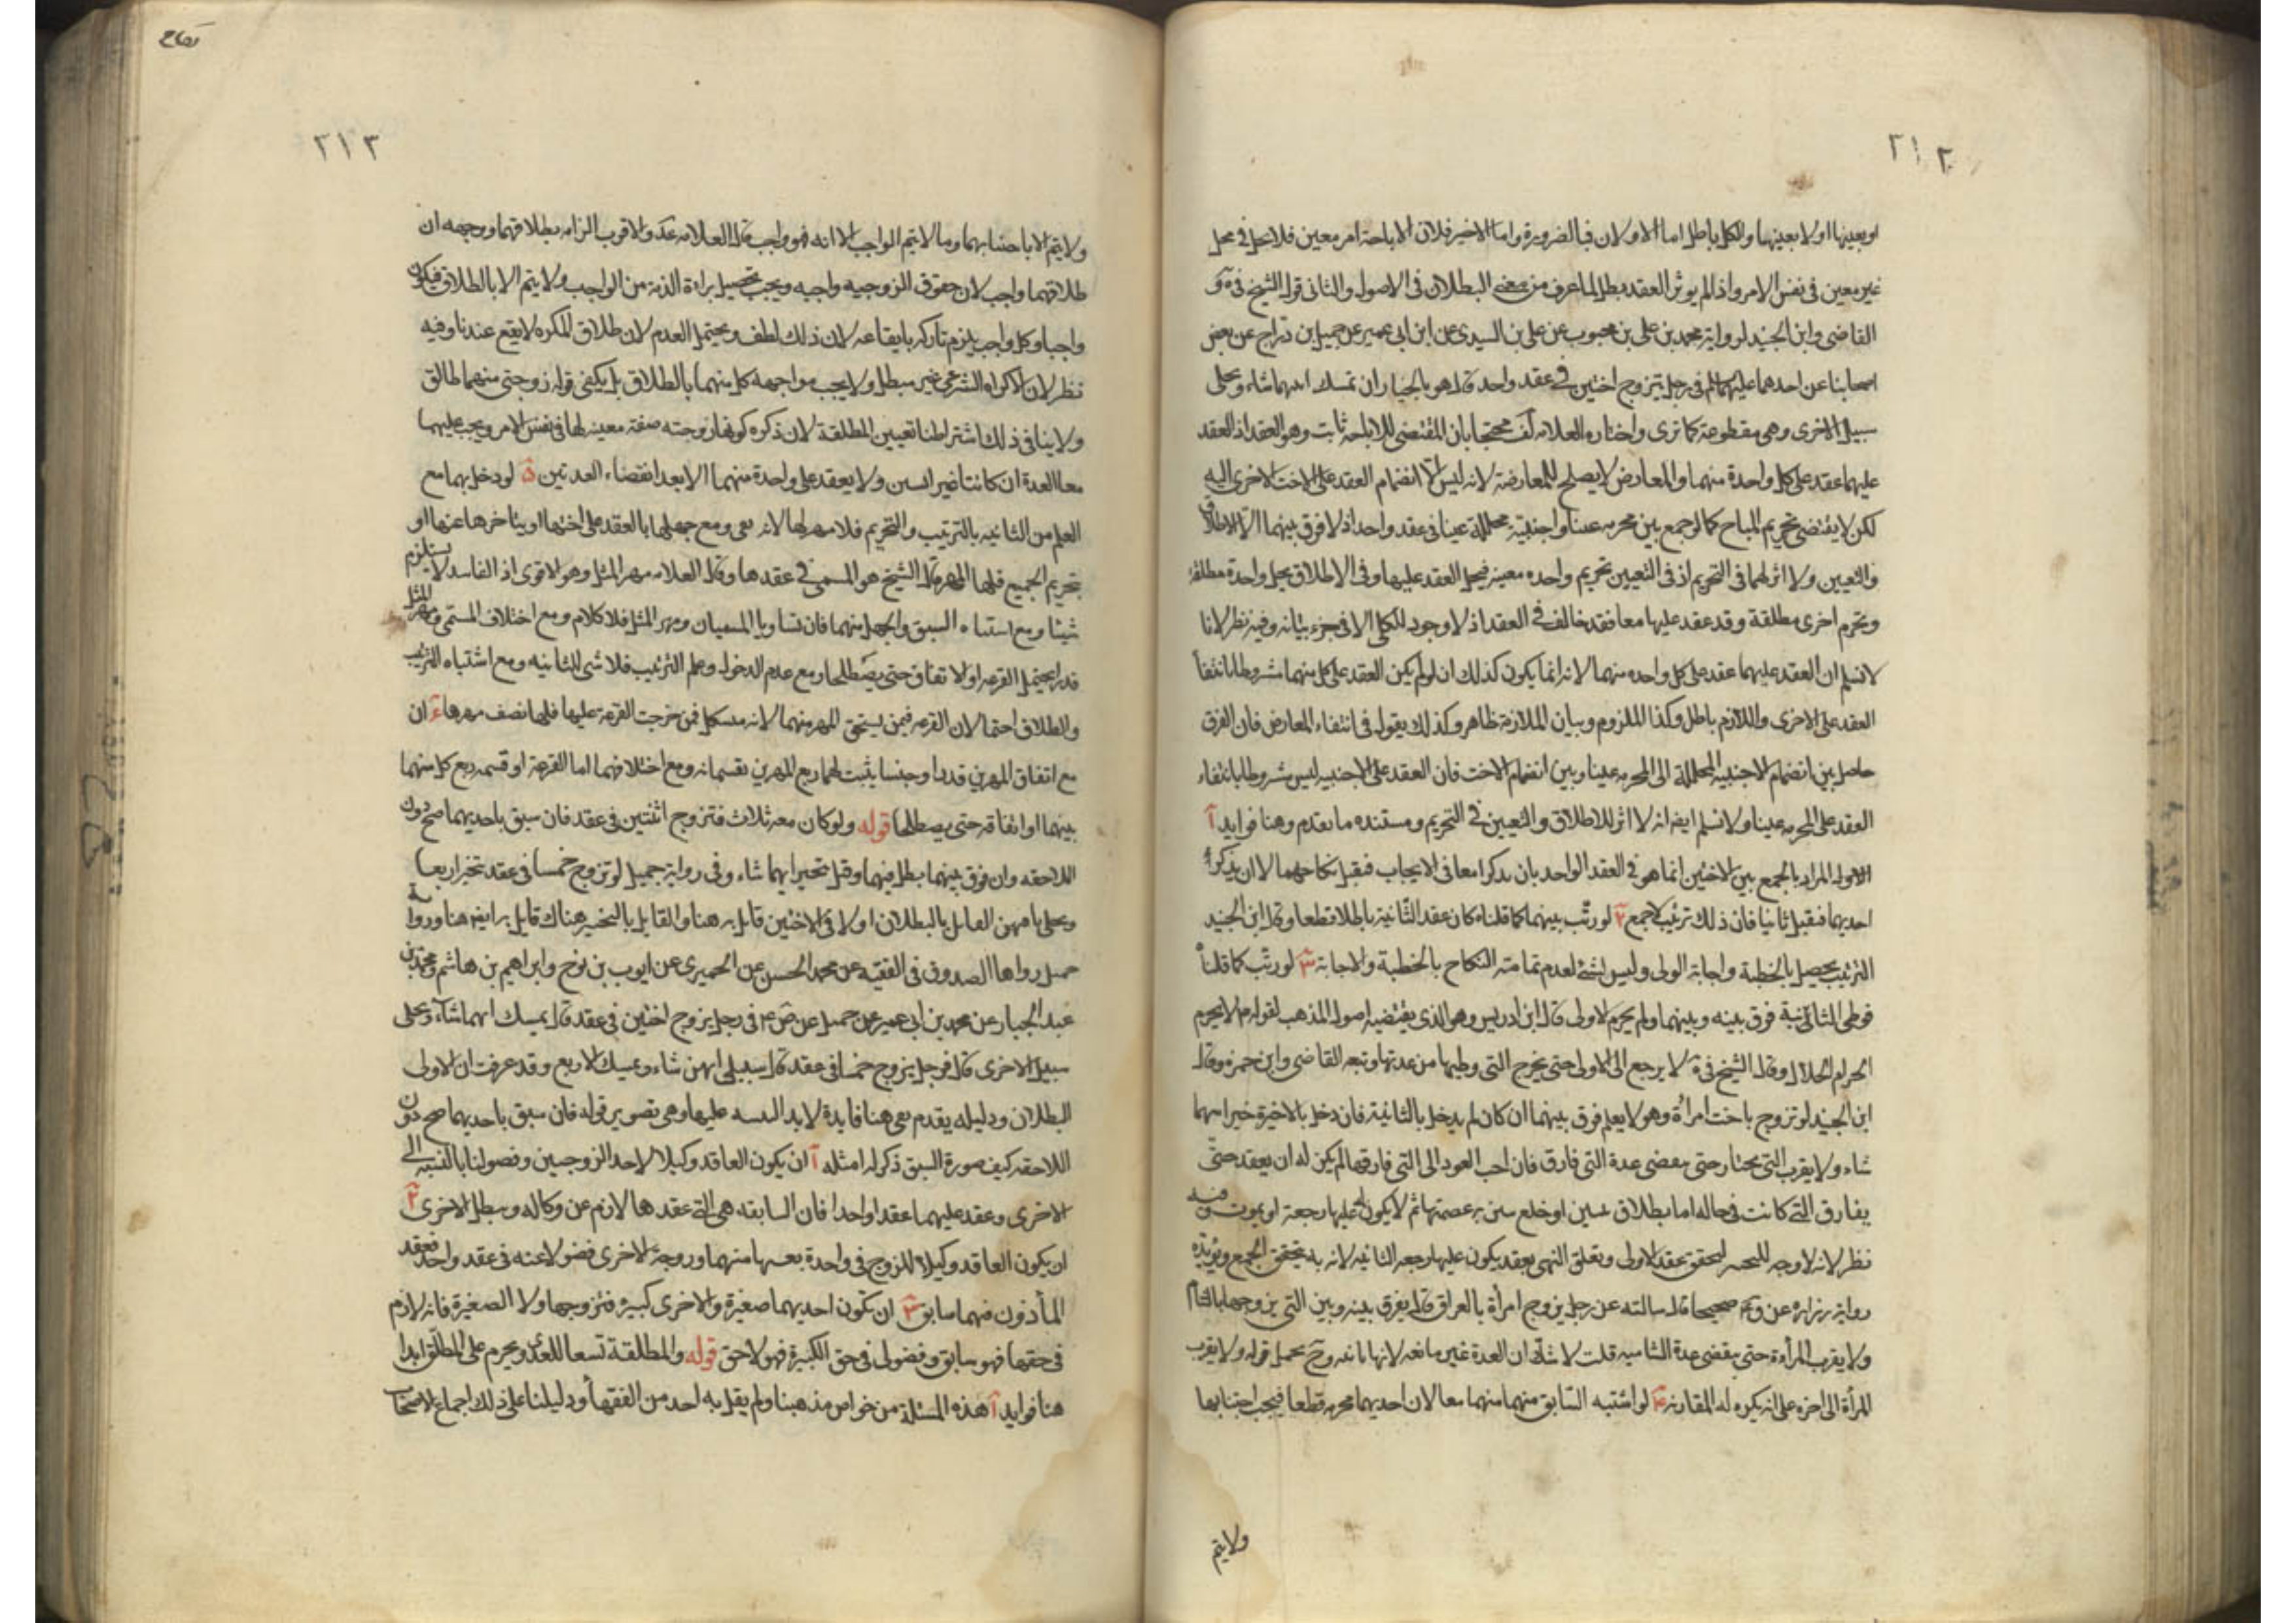 ٢١٢
او بعينها او لا بعينها والكل باطل اما الاولان فبالضرورة واما الاخير فلان الاباحة امر معين فلا يحل في محل
غير معين في نفس الامر واذا لم يوثر العقد بطل لما عرف من معنى البطلان في الاصول والثاني قول الشيخ في يه و
القاضي وابن الجنيد لرواية محمد بن علي بن محبوب عن علي بن السندي عن ابن ابي عمير عن جميل بن دراج عن بعض
اصحابنا عن احدهما عليهما السلم في رجل تزوج اختين في عقد واحد قال هو بالخيار ان تمسك ايتهما شاء ويخلي
سبيل الاخرى وهي مقطوعة كما ترى واختاره العلامه في لف محتجا بان المقتضي للاباحة ثابت وهو العقد اذ العقد
عليهما عقد على كل واحدة منهما والمعارض لا يصلح للمعارضة لانه ليس الا انضمام العقد على الاخت الاخرى اليه
لكن لا يقتضي تحريم المباح كما لو جمع بين محرمه عينا واجنبيّة محللة عينا في عقد واحد اذ لا فرق بينهما الا الاطلاق
والتعيين ولا اثر لهما في التحريم اذ في التعيين تحريم واحده معينه فيحل العقد عليها وفي الاطلاق يحل واحدة مطلقه
وتحرم اخرى مطلقة وقد عقد عليها معا فقد خالف في العقد اذ لا وجود للكلي الا في جزءياته وفيه نظر لانا
لا نسلم ان العقد عليهما عقد على كل واحده منهما لانه انما يكون كذلك ان لو لم يكن العقد على كل منهما مشروطا بانتفا
العقد على الاخرى واللازم باطل وكذا الملزوم وبيان الملازمة ظاهر وكذلك يقول في انتفاء المعارض فان الفرق
حاصل بين انضمام الاجنبيه المحللة الى المحرمه عينا وبين انضمام الاخت فان العقد على الاجنبيه ليس مشروطا بانتفاء
العقد على المحرمه عينا ولا نسلم ايضا انه لا اثر للاطلاق والتعيين في التحريم ومستنده ما تقدم وهنا فوايد آ
الاول المراد بالجمع بين الاختين انما هو في العقد الواحد بان يذكرا معا في الايجاب فيقبل نكاحهما لا ان يذكر
احديهما فيقبل ثانيا فان ذلك ترتيب لا جمع ٢ لو رتّب بينهما كما قلناه كان عقد الثانية باطلا قطعا وقال ابن الجنيد
الترتيب يحصل بالخطبة واجابة الولي وليس بشئ لعدم تمامته النكاح بالخطبة والاجابة ٣ لو رتّب كما قلنا
فوطي الثانية فرق بينه وبينهما ولم يحرم الاولى قاله ابن ادريس وهو الذي يقتضيه اصول المذهب لقولهم لا يحرم
الحرام الحلال وقال الشيخ في يه لا يرجع الى الاولى حتى يخرج التي وطيها من عدتها وتبعه القاضي وابن حمزه وقال
ابن الجنيد لو تزوج باخت امراة وهو لا يعلم فرق بينهما ان كان لم يدخل بالثانية فان دخل بالاخيرة خير ايتهما
شاء ولا يقرب التي يختار حتى ينقضي عدة التي فارق فان احب العود الى التي فارقها لم يكن له ان يعقد حتّى
يفارق التي كانت في حاله اما بطلاق بين او خلع بين به عصمتها ثم لا يكون له عليها رجعة او يموت وفيه
نظر لانه لا وجه للتخيير لتحقق عقد الاولى وتعلق النهي بعقد يكون عليها وجعه الثانيه لانه به يتحقق الجمع ويؤيّده
رواية زراره عن صحيحا قال سالته عن رجل تزوج امرأة بالعراق قال يفرق بينه وبين التي تزوجها بالشام
ولا يقرب المرأة حتى ينقضي عدة الشاميه قلت لا شك ان العدة غير مانعه لانها بائنه وح يحمل قوله ولا يقرب
المرأة الى اخره على انه يكره له المقاربه ٤ لو اشتبه السّابق منهما منهما معا لان احديهما محرمه قطعا فيجب اجتنابها
ولا يتم
٢١٣
ولا يتم الا باجتنابهما وما لا يتم الواجب الا به فهو واجب قال العلامه عد والاقرب الزامه بطلاقهما ووجهه ان
طلاقهما واجب لان حقوق الزوجيه واجبه ويجب تحصيل براءة الذمه من الواجب ولا يتم الا بالطلاق فيكون
واجبا وكل واجب يلزم تاركه بايقاعه لان ذلك لطف ويحتمل العدم لان طلاق المكره لا يقع عندنا وفيه
نظر لان الاكراه الشرعي غير مبطل ولا يجب مواجهه كل منهما بالطلاق بل يكفي قوله زوجتي منهما طالق
ولا ينافي ذلك اشتراطنا تعيين المطلقة لان ذكره كونها زوجته صفة معينه لها في نفس الامر ويجب عليهما
معا العدة ان كانتا غير ولا يعقد على واحدة منهما الا بعد انقضاء العدتين ٥ لو دخل بهما مع
العلم من الثانيه بالترتيب والتحريم فلا مهر لها لانه بغي ومع جهلها بالعقد على اختها او بتاخرها عنها او
بتحريم الجمع فلها المهر قال الشيخ هو المسمى في عقدها وقال العلامه مهر المثل وهو الاقوى اذ الفاسد لا يستلزم
شيئا ومع اشتباه السبق والجهل منهما فان تساويا المسميان ومهر المثل فلا كلام ومع اختلاف المسمى ومهر المثل
قدرا يحتمل القرعه او الاتفاق حتى يصطلحا ومع عدم الدخول وعلم الترتيب فلا شئ للثانيه ومع اشتباه الترتيب
والطلاق احتمالان القرعه فيمن يستحق المهر منهما لانه مشكل فمن خرجت القرعة عليها فلها نصف مهرها ان
مع اتفاق المهرين قدرا وجنسا يثبت لهما ربع المهرين يقسمانه ومع اختلافهما اما القرعة او قسمه ربع كل منهما
بينهما او اتفاقه حتى يصطلحا قوله ولو كان معه ثلاث فتزوج اثنتين في عقد فان سبق باحديهما صح دون
اللاحقه وان فرق بينهما بطل فيهما وقيل تخير ايهما شاء وفي رواية جميل لو تزوج خمسا في عقد تخير اربعا
ويخلي باقيهن القائل بالبطلان اولا في الاختين قايل به هنا والقايل بالتخيير هناك قايل به ايضا هنا ورواية
جميل رواها الصدوق في الفقيه عن محمد الحسن عن الحميري عن ايوب بن نوح وابراهيم بن هاشم ومحمد بن
عبد الجبار عن محمد بن ابي عمير عن جميل عن ص ع م في رجل تزوج اختين في عقد قال يمسك ايهما شاء ويخلي
سبيل الاخرى قال في رجل تزوج خمسا في عقد قال يخلي ايهن شاء ويمسك الاربع وقد عرفت ان الاولى
البطلان ودليله بقدم بقي هنا فايدة لا بد عليها وهي تصوير قوله فان سبق باحديهما صح دون
اللاحقه كيف صورة السبق ذكر له امثله آ ان يكون العاقد وكيلا لاحد الزوجين وفضوليا بالنسبه الى
الاخرى وعقد عليهما عقدا واحدا فان السابقه هي التي عقدها لازم عن وكاله ويبطل الاخرى ٢
ان يكون العاقد وكيلا للزوج في واحدة بعينها منهما وزوجه الاخرى فضولا عنه في عقد واحد فعقد
المأذون فيهما سابق ٣ ان تكون احديهما صغيرة والاخرى كبيرة فتزوجها ولا الصغيرة فانه لازم
في حقها فهو سابق وفضولي في حق الكبيرة فهو لاحق قوله والمطلقة تسعا للعدة يحرم على المطلق ابدا
هنا فوايد آ هذه المسئلة من خواص مذهبنا ولم يقل به احد من الفقهاء ودليلنا على ذلك اجماع الاصحاب